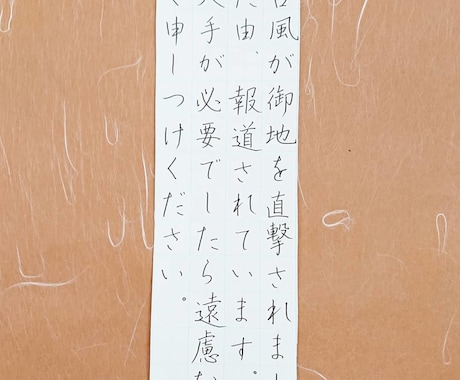 台風が御地を直撃されまし
た由、報道されています。
人手が必要でしたら遠慮な
く申しつけください。